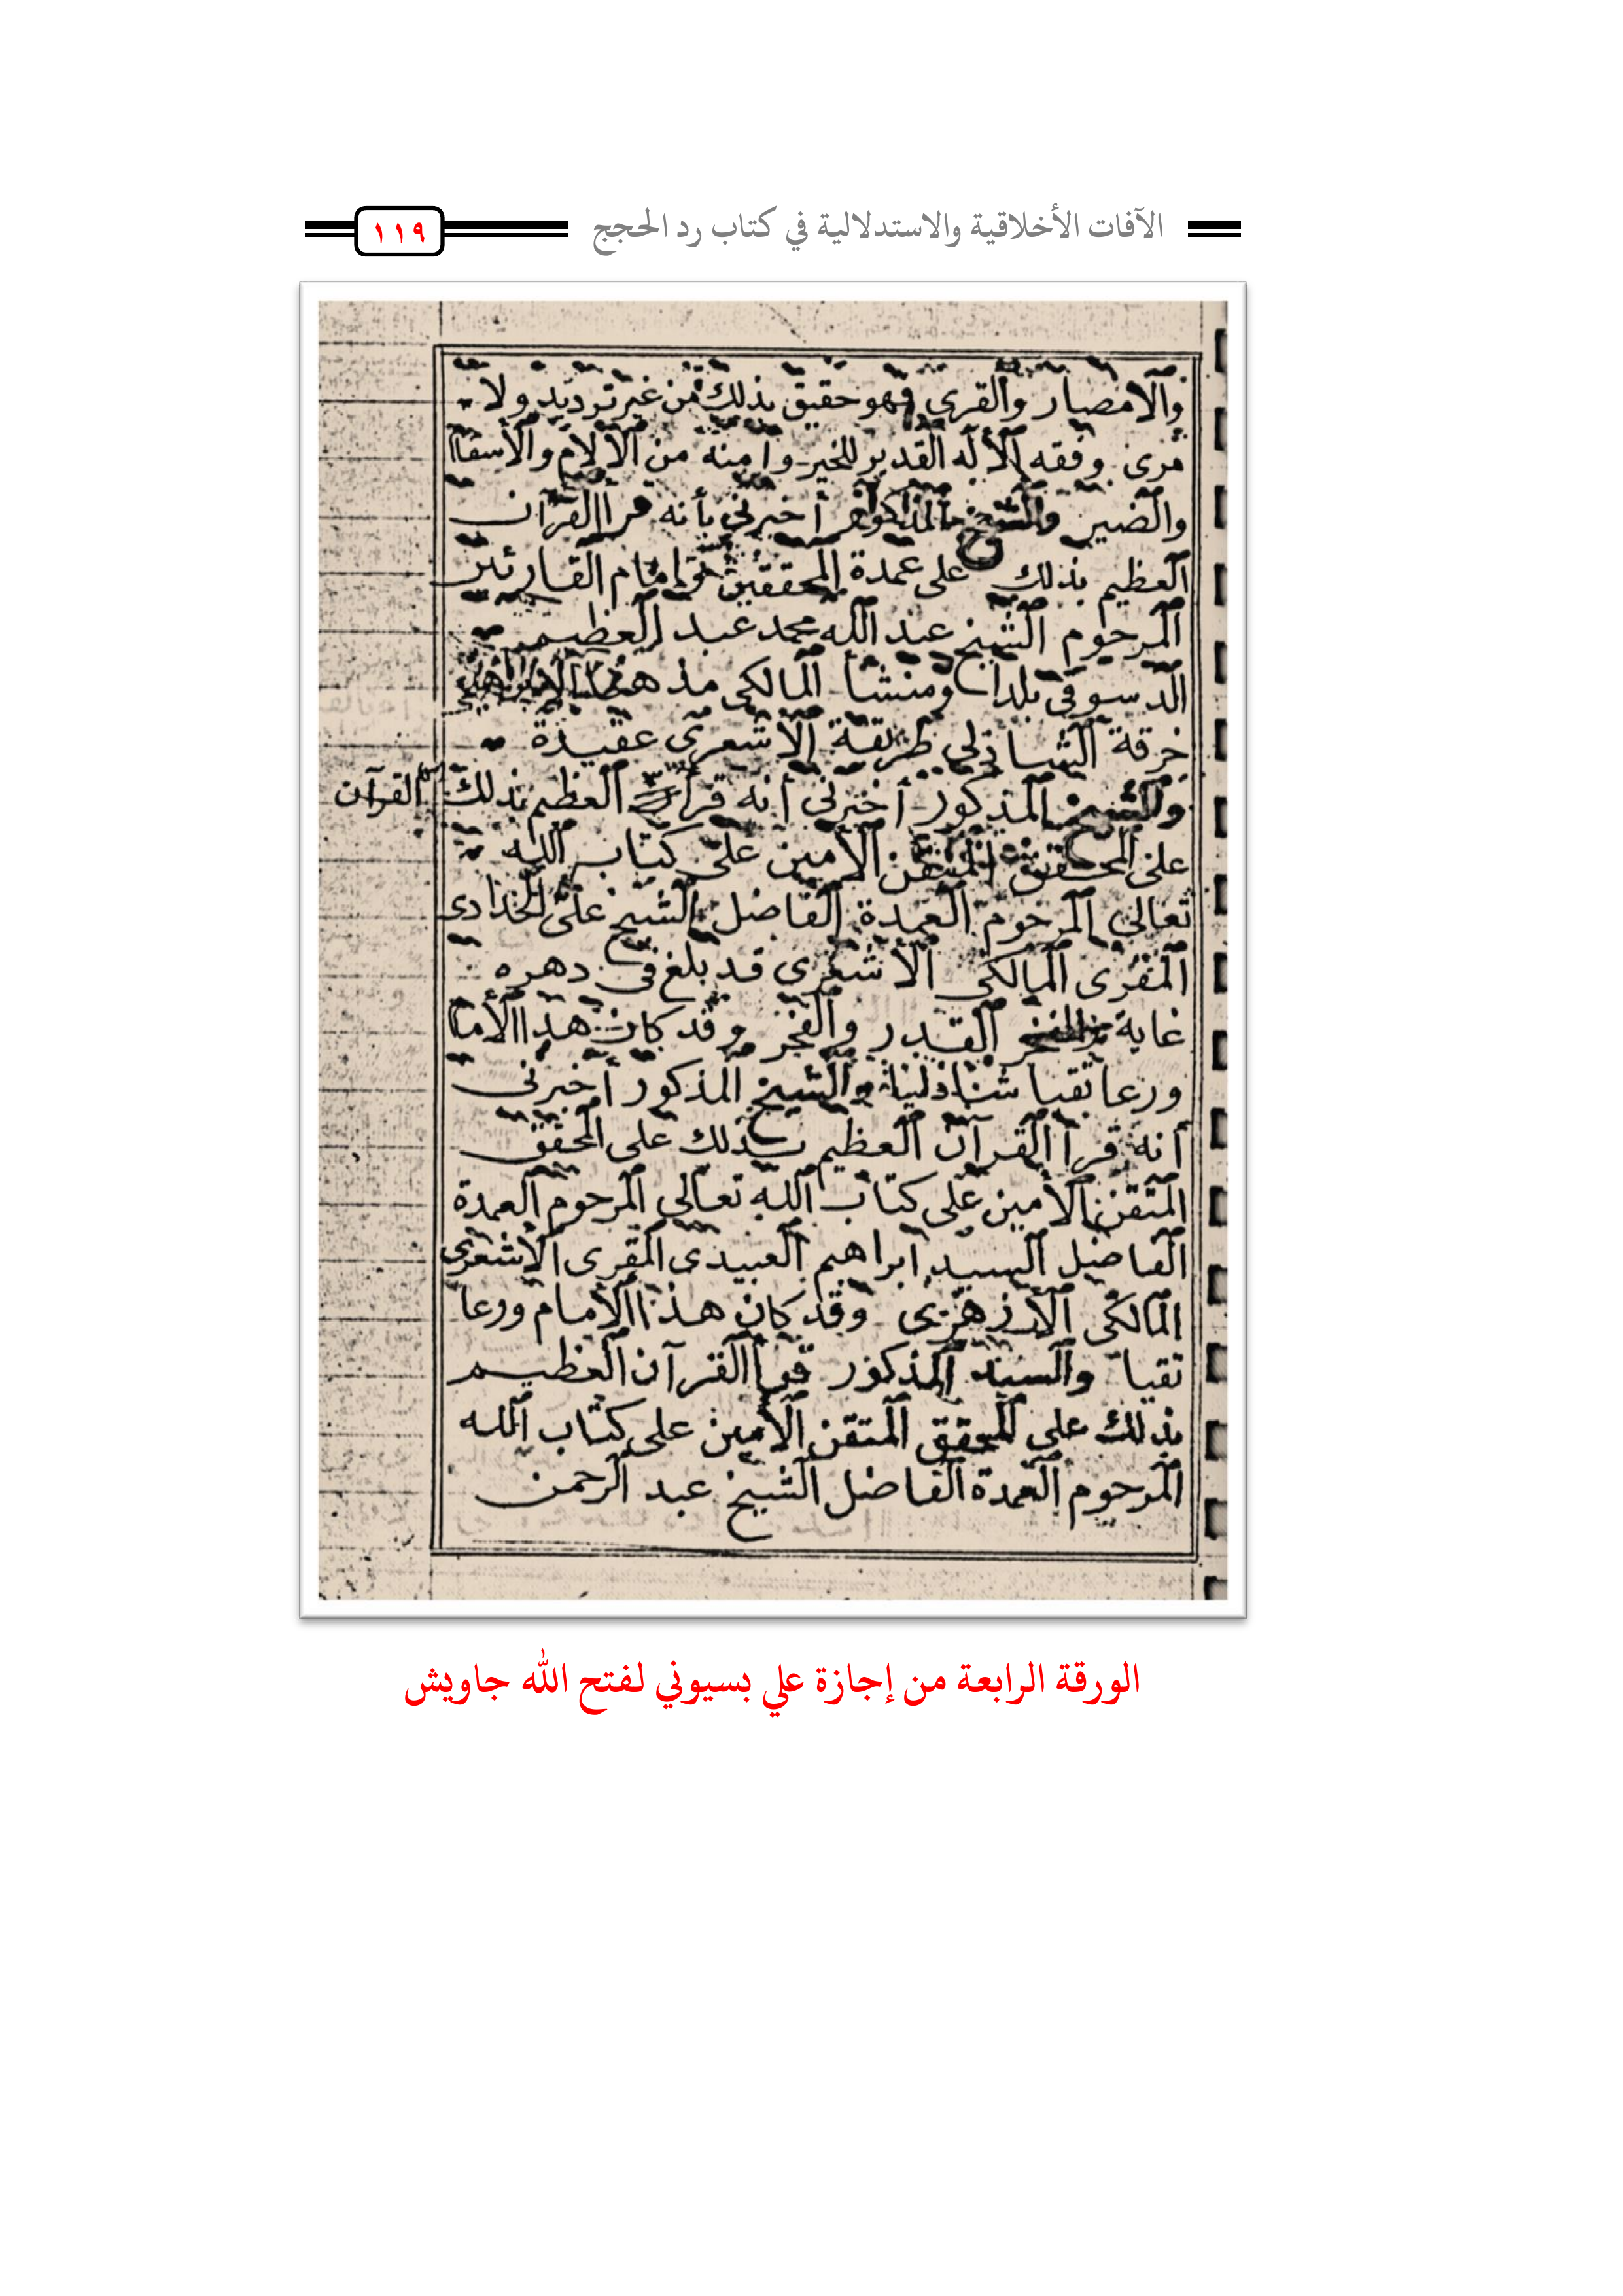 الآفات الأخلاقية والاستدلالية في كتاب رد الحجج
١١٩
والامصار والقرى فهو حقيق بذلك من غير ترديد ولا
مرى وفقه الأله القديم للخير وامنه من الألام والأسقا
والضير والشيخ المذكور أخبرني بأنه قرأ القرآن
العظيم بذلك على عمدة المحققين وامام القارئين
المرحوم الشيخ عبد الله محمد عبد العظيم
الدسوقى بلدا ومنشأ المالكى مذهبا
خرقة الشاذلى طريقة الأشعرى عقيدة
والشيخ المذكور أخبرنى أنه قرأ العظيم بذلك
القرآن
على المحقق المتقن الأمين على كتاب الله
تعالى المرحوم العمدة الفاضل الشيخ على الحدادى
المقرى المالكى الأشعرى قد بلغ فى دهره
غاية القدر والفخر وقد كان هذا الأما
ورعا تقيا شاذليا والشيخ المذكور أخبرنى
أنه قرأ القرآن العظيم بذلك على المحقق
المتقن الأمين على كتاب الله تعالى المرحوم العمدة
الفاضل السيد ابراهيم العبيدى المقرى الأشعرى
المالكى الأزهرى وقد كان هذا الأمام ورعا
تقيا والسيد المذكور قرأ القرآن العظيم
بذلك على المحقق المتقن الأمين على كتاب الله
المرحوم العمدة الفاضل الشيخ عبد الرحمن
الورقة الرابعة من إجازة علي بسيوني لفتح الله جاويش